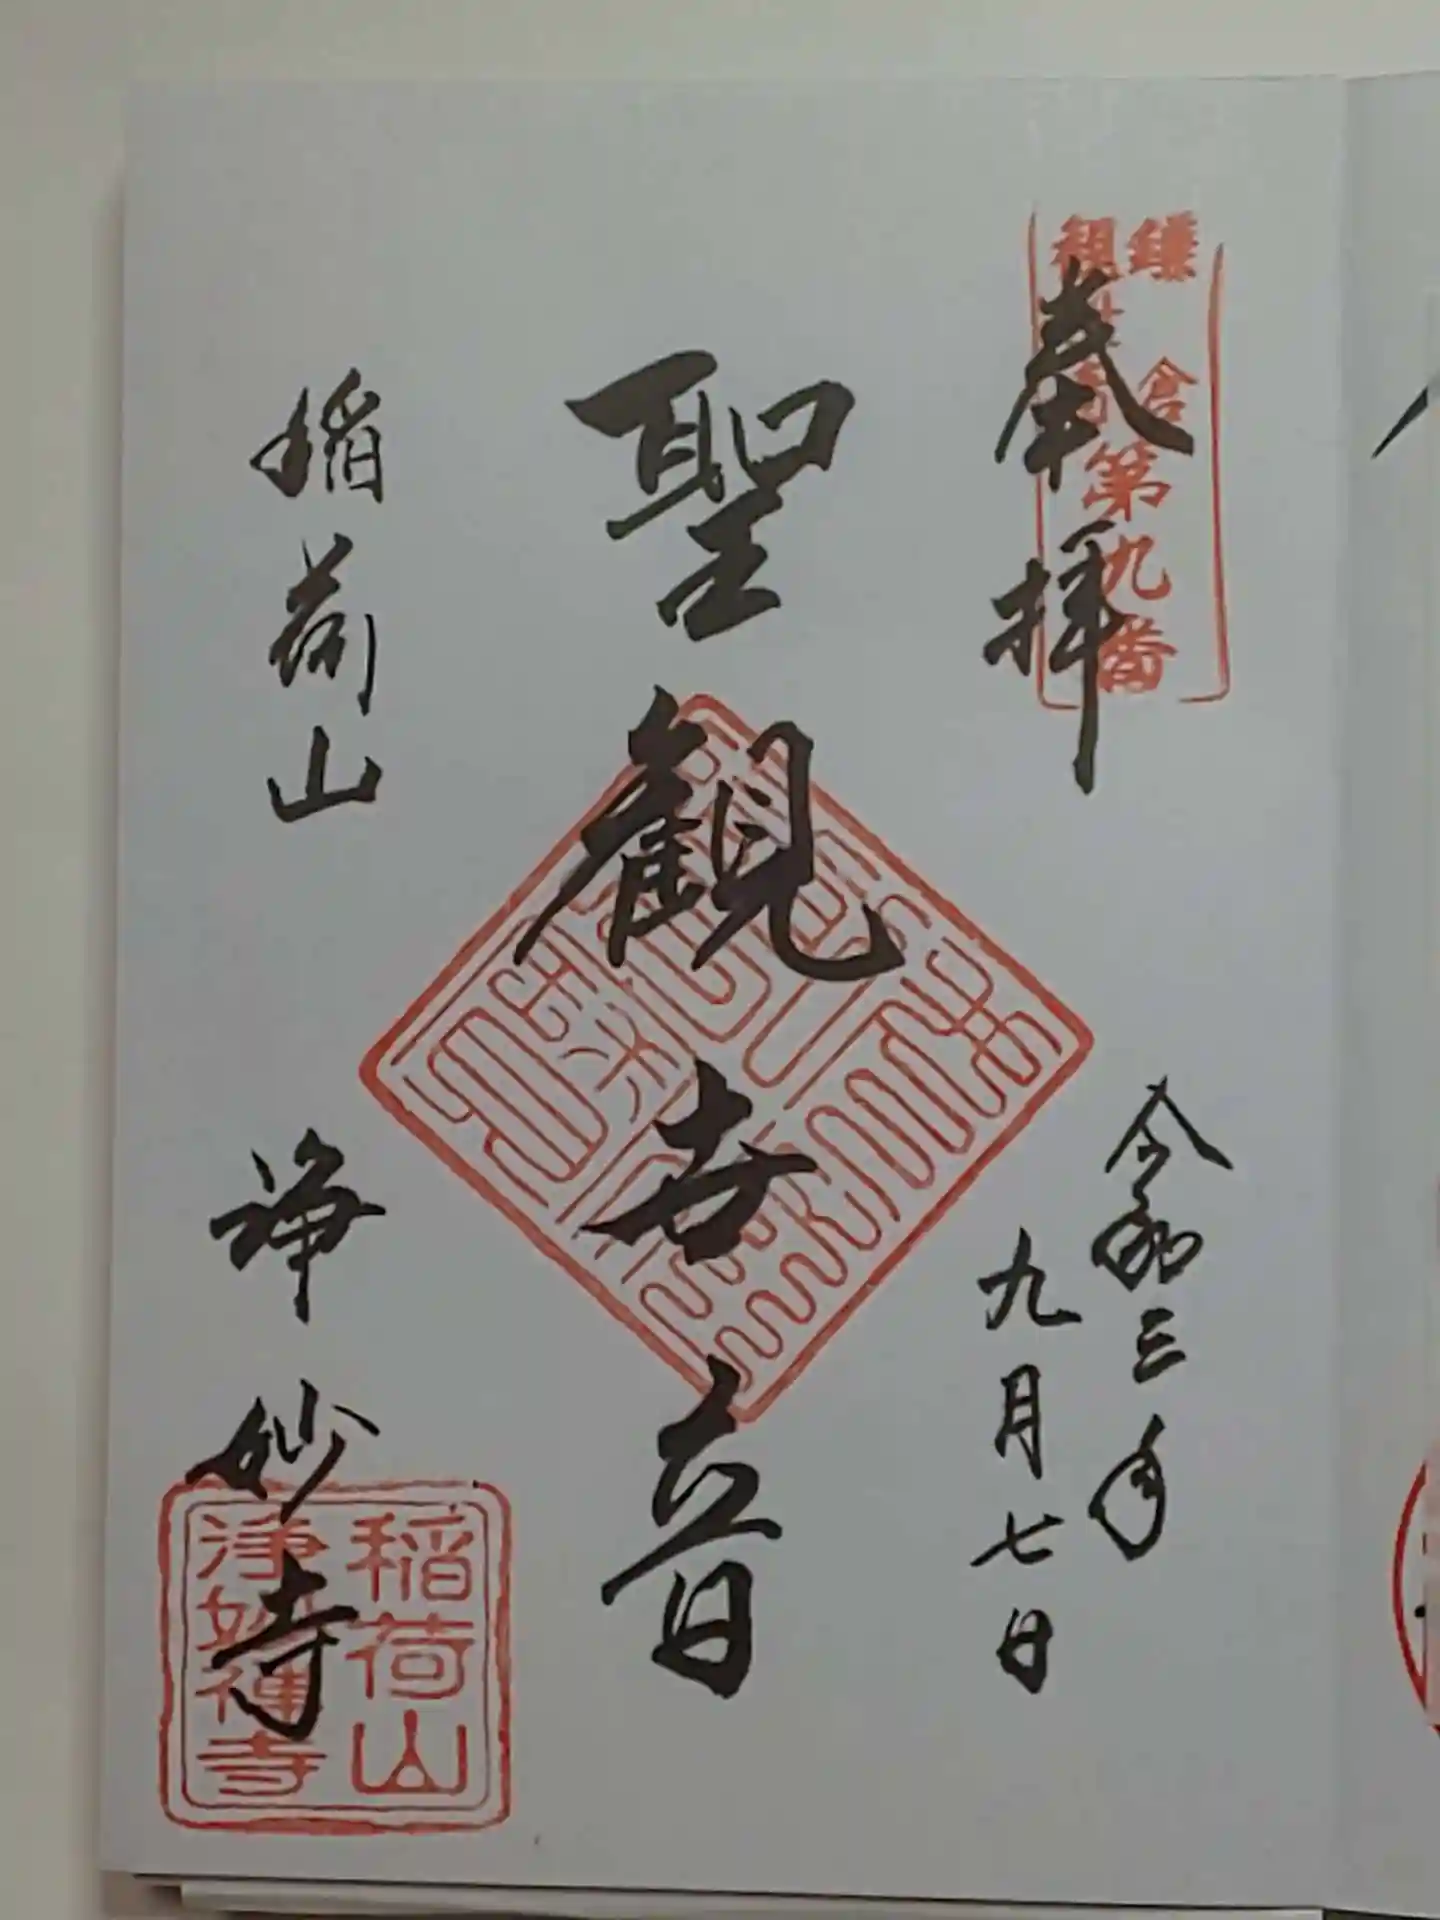 鎌倉
観世音
第九番
奉拝
令和三年
九月七日
聖観世音
稲荷山
浄妙寺
稲荷山
浄妙禅寺